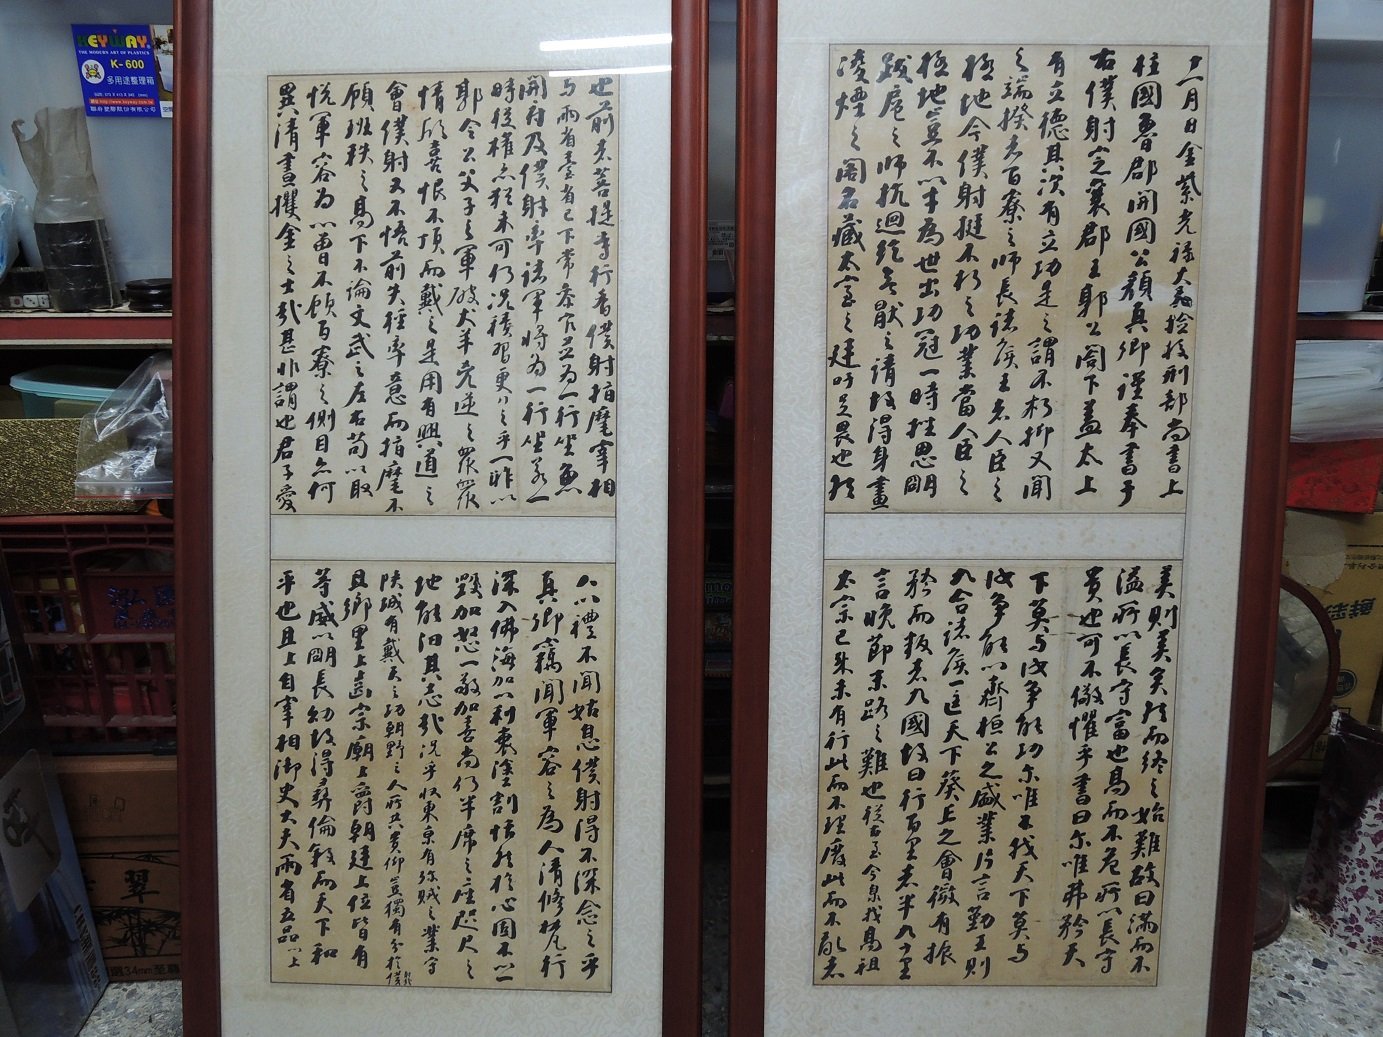 十一月日金紫光祿大夫檢校刑部尚書上
柱國魯郡開國公顏真卿謹奉書于
右僕射定襄郡王郭公閤下蓋太上
有立德其次有立功是之謂不朽抑又聞
之端揆者百寮之師長諸侯王者人臣之
極地今僕射挺不朽之功業當人臣之
極地豈不以才為世出功冠一時挫思明
跋扈之師抗迴紇無猒之請故得身畫
凌煙之閣名藏太室之廷吁足畏也然
美則美矣然而終之始難故曰滿而不
溢所以長守富也高而不危所以長守
貴也可不儆懼乎書曰尔唯弗矜天
下莫与汝爭能功尔唯不伐天下莫与
汝爭能以齊桓公之盛業片言勤王則
九合諸侯一匡天下葵丘之會微有振
矜而叛者九國故曰行百里者半九十里
言晚節末路之難也從古至今泉我高祖
太宗已來未有行此而不理廢此而不亂者
也前者菩提寺行香僕射指麾宰相
与兩省臺省已下常參官並為一行坐魚
開府及僕射率諸軍將為一行坐若一
時從權亦猶未可仍況積習更行之乎一昨以
郭令公父子之軍破犬羊兇逆之眾眾
情欣喜恨不頂而戴之是用有興道之
會僕射又不悟前失徑率意而指麾不
顧班秩之高下不論文武之左右苟以取
悅軍容為心曾不顧百寮之側目亦何
異清晝攫金之士哉甚非謂也君子愛
人以禮不聞姑息僕射得不深念之乎
真卿竊聞軍容之為人清修梵行
深入佛海加以利衰塗割恬然於心固不以一
毀加怒一敬加喜尚仍半席之座咫尺之
地能汩其志哉況乎收東京有殄賊之業守
陝城有戴天之功朝野之人所共貴仰豈獨有分於僕射哉
且鄉里上齒宗廟上爵朝廷上位皆有
等威以明長幼故得彝倫敘而天下和
平也且上自宰相御史大夫兩省五品以上
KEYWAY
THE MODERN ART OF PLASTICS
K-600
多用途整理箱
翠